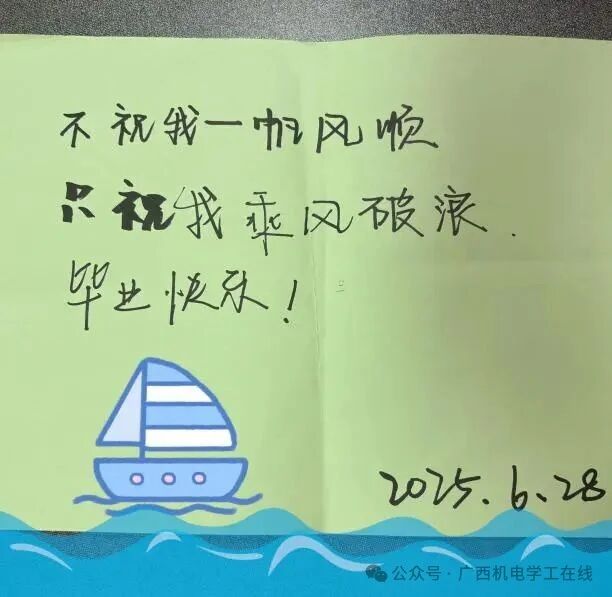 不祝我一帆风顺
只祝我乘风破浪.
毕业快乐!
2025.6.28
公众号·广西机电学工在线